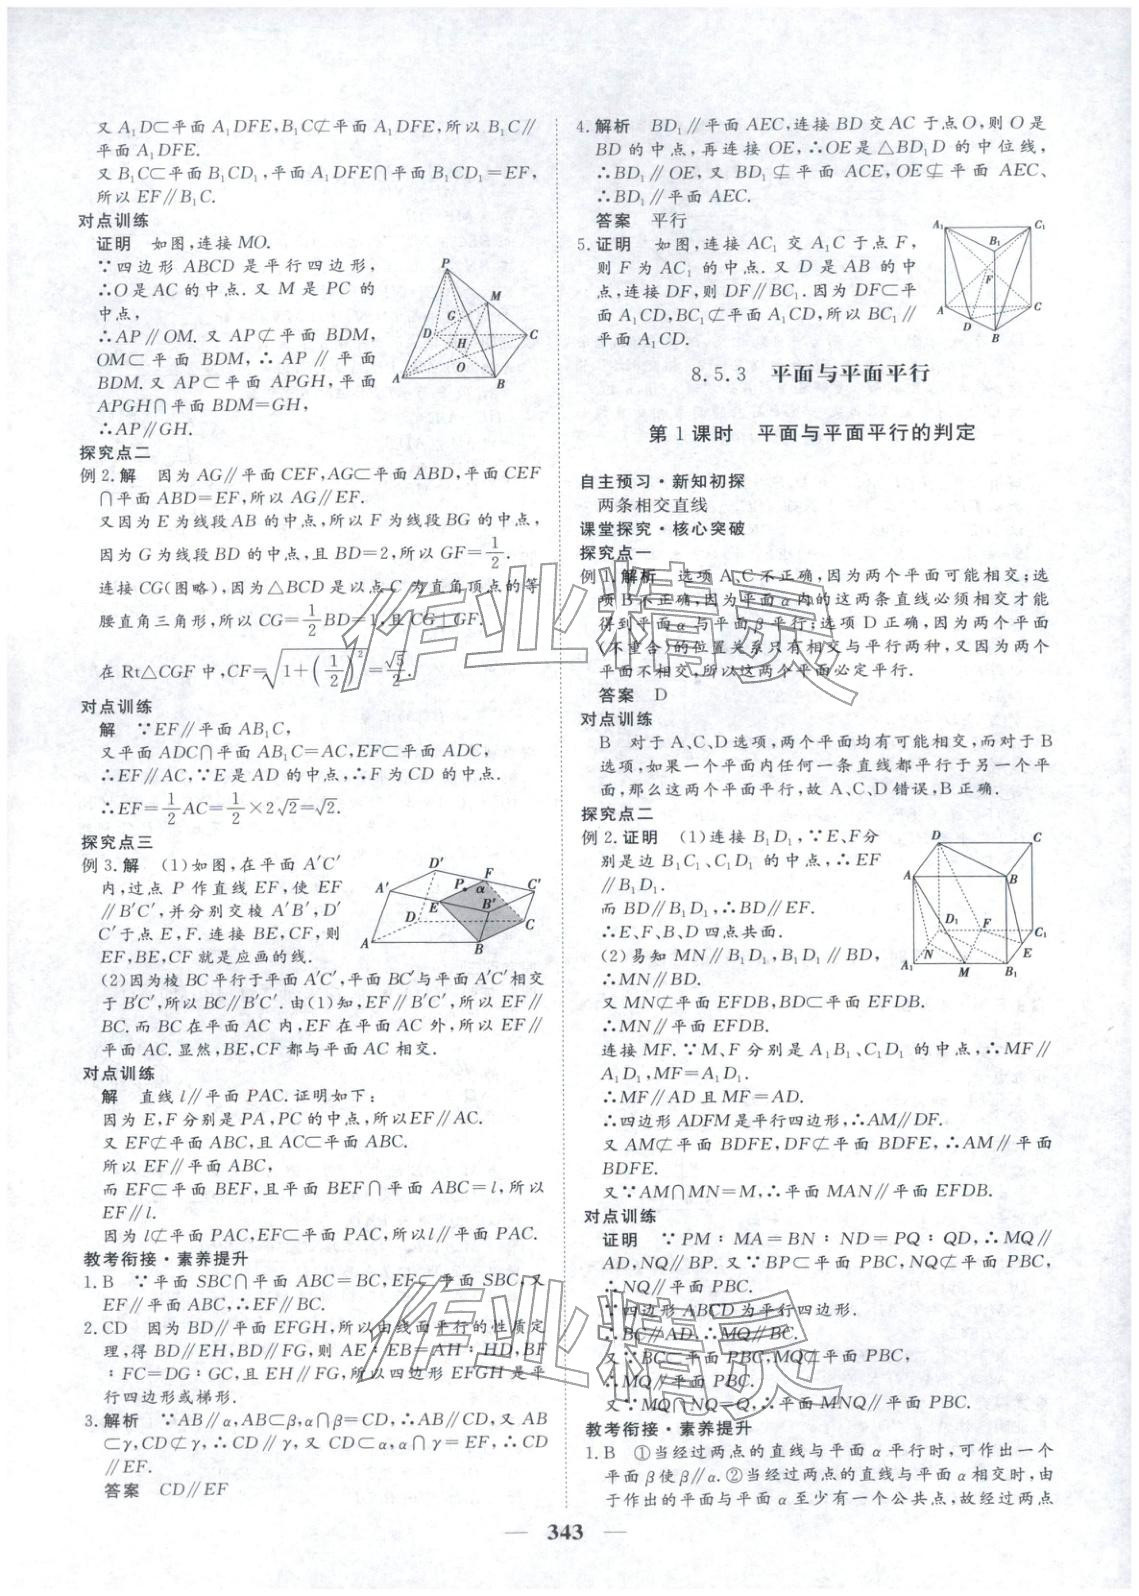 又 A₁D⊂平面 A₁DFE,B₁C⊄平面 A₁DFE,所以 B₁C∥
平面 A₁DFE.
又 B₁C⊂平面 B₁CD₁,平面 A₁DFE∩平面 B₁CD₁=EF,
所以 EF∥B₁C.
对点训练
证明 如图,连接 MO.
∵四边形 ABCD 是平行四边形,
∴O 是 AC 的中点.又 M 是 PC 的
中点,
∴AP∥OM.又 AP⊄平面 BDM,
OM⊂平面 BDM,∴AP∥平面
BDM.又 AP⊂平面 APGH,平面
APGH∩平面 BDM=GH,
∴AP∥GH.
P
M
G
D
C
H
O
A
B
探究点二
例 2.解 因为 AG∥平面 CEF,AG⊂平面 ABD,平面 CEF
∩平面 ABD=EF,所以 AG∥EF.
又因为 E 为线段 AB 的中点,所以 F 为线段 BG 的中点,
因为 G 为线段 BD 的中点,且 BD=2,所以 GF=1/2.
连接 CG(图略),因为△BCD 是以点 C 为直角顶点的等
腰直角三角形,所以 CG=1/2BD=1,且 CG⊥GF.
在 Rt△CGF 中,CF=√(1+(1/2)²)=√5/2.
对点训练
解 ∵EF∥平面 AB₁C,
又平面 ADC∩平面 AB₁C=AC,EF⊂平面 ADC,
∴EF∥AC,∵E 是 AD 的中点,∴F 为 CD 的中点.
∴EF=1/2AC=1/2×2√2=√2.
探究点三
例 3.解 (1)如图,在平面 A′C′
内,过点 P 作直线 EF,使 EF
∥B′C′,并分别交棱 A′B′,D′
C′于点 E,F.连接 BE,CF,则
EF,BE,CF 就是应画的线.
D′
F
P
α
A′
C′
E
B′
D
C
A
B
(2)因为棱 BC 平行于平面 A′C′,平面 BC′与平面 A′C′相交
于 B′C′,所以 BC∥B′C′.由(1)知,EF∥B′C′,所以 EF∥
BC.而 BC 在平面 AC 内,EF 在平面 AC 外,所以 EF∥
平面 AC.显然,BE,CF 都与平面 AC 相交.
对点训练
解 直线 l∥平面 PAC.证明如下:
因为 E,F 分别是 PA,PC 的中点,所以 EF∥AC.
又 EF⊄平面 ABC,且 AC⊂平面 ABC,
所以 EF∥平面 ABC,
而 EF⊂平面 BEF,且平面 BEF∩平面 ABC=l,所以
EF∥l.
因为 l⊄平面 PAC,EF⊂平面 PAC,所以 l∥平面 PAC.
教考衔接·素养提升
1.B ∵平面 SBC∩平面 ABC=BC,EF⊂平面 SBC,又
EF∥平面 ABC,∴EF∥BC.
2.CD 因为 BD∥平面 EFGH,所以由线面平行的性质定
理,得 BD∥EH,BD∥FG,则 AE∶EB=AH∶HD,BF
∶FC=DG∶GC,且 EH∥FG,所以四边形 EFGH 是平
行四边形或梯形.
3.解析 ∵AB∥α,AB⊂β,α∩β=CD,∴AB∥CD,又 AB
⊂γ,CD⊄γ,∴CD∥γ,又 CD⊂α,α∩γ=EF,∴CD
∥EF.
答案 CD∥EF
4.解析 BD₁∥平面 AEC,连接 BD 交 AC 于点 O,则 O 是
BD 的中点,再连接 OE,∴OE 是△BD₁D 的中位线,
∴BD₁∥OE,又 BD₁⊈平面 ACE,OE⊈平面 AEC、
∴BD₁∥平面 AEC.
答案 平行
5.证明 如图,连接 AC₁ 交 A₁C 于点 F,
则 F 为 AC₁ 的中点.又 D 是 AB 的中
点,连接 DF,则 DF∥BC₁.因为 DF⊂平
面 A₁CD,BC₁⊄平面 A₁CD,所以 BC₁∥
平面 A₁CD.
A₁
C₁
B₁
F
A
C
D
B
8.5.3 平面与平面平行
第 1 课时 平面与平面平行的判定
自主预习·新知初探
两条相交直线
课堂探究·核心突破
探究点一
例 1.解析 选项 A、C 不正确,因为两个平面可能相交;选
项 B 不正确,因为平面 α 内的这两条直线必须相交才能
得到平面 α 与平面 β 平行;选项 D 正确,因为两个平面
(不重合)的位置关系只有相交与平行两种,又因为两个
平面不相交,所以这两个平面必定平行.
答案 D
对点训练
B 对于 A、C、D 选项,两个平面均有可能相交,而对于 B
选项,如果一个平面内任何一条直线都平行于另一个平
面,那么这两个平面平行,故 A、C、D 错误,B 正确.
探究点二
例 2.证明 (1)连接 B₁D₁,∵E、F 分
别是边 B₁C₁、C₁D₁ 的中点,∴EF
∥B₁D₁.
而 BD∥B₁D₁,∴BD∥EF.
∴E、F、B、D 四点共面.
(2)易知 MN∥B₁D₁,B₁D₁∥BD,
∴MN∥BD.
又 MN⊄平面 EFDB,BD⊂平面 EFDB.
∴MN∥平面 EFDB.
连接 MF.∵M、F 分别是 A₁B₁、C₁D₁ 的中点,∴MF∥
A₁D₁,MF=A₁D₁.
∴MF∥AD 且 MF=AD.
∴四边形 ADFM 是平行四边形,∴AM∥DF.
又 AM⊄平面 BDFE,DF⊂平面 BDFE,∴AM∥平面
BDFE.
又∵AM∩MN=M,∴平面 MAN∥平面 EFDB.
D
C
A
B
D₁
F
C₁
N
E
A₁
M
B₁
对点训练
证明 ∵PM∶MA=BN∶ND=PQ∶QD,∴MQ∥
AD,NQ∥BP.又∵BP⊂平面 PBC,NQ⊄平面 PBC,
∴NQ∥平面 PBC.
∵四边形 ABCD 为平行四边形.
∴BC∥AD,∴MQ∥BC.
又∵BC⊂平面 PBC,MQ⊄平面 PBC,
∴MQ∥平面 PBC.
又∵MQ∩NQ=Q,∴平面 MNQ∥平面 PBC.
教考衔接·素养提升
1.B ①当经过两点的直线与平面 α 平行时,可作出一个
平面 β 使 β∥α.②当经过两点的直线与平面 α 相交时,由
于作出的平面与平面 α 至少有一个公共点,故经过两点
343
作业精灵
作业精灵